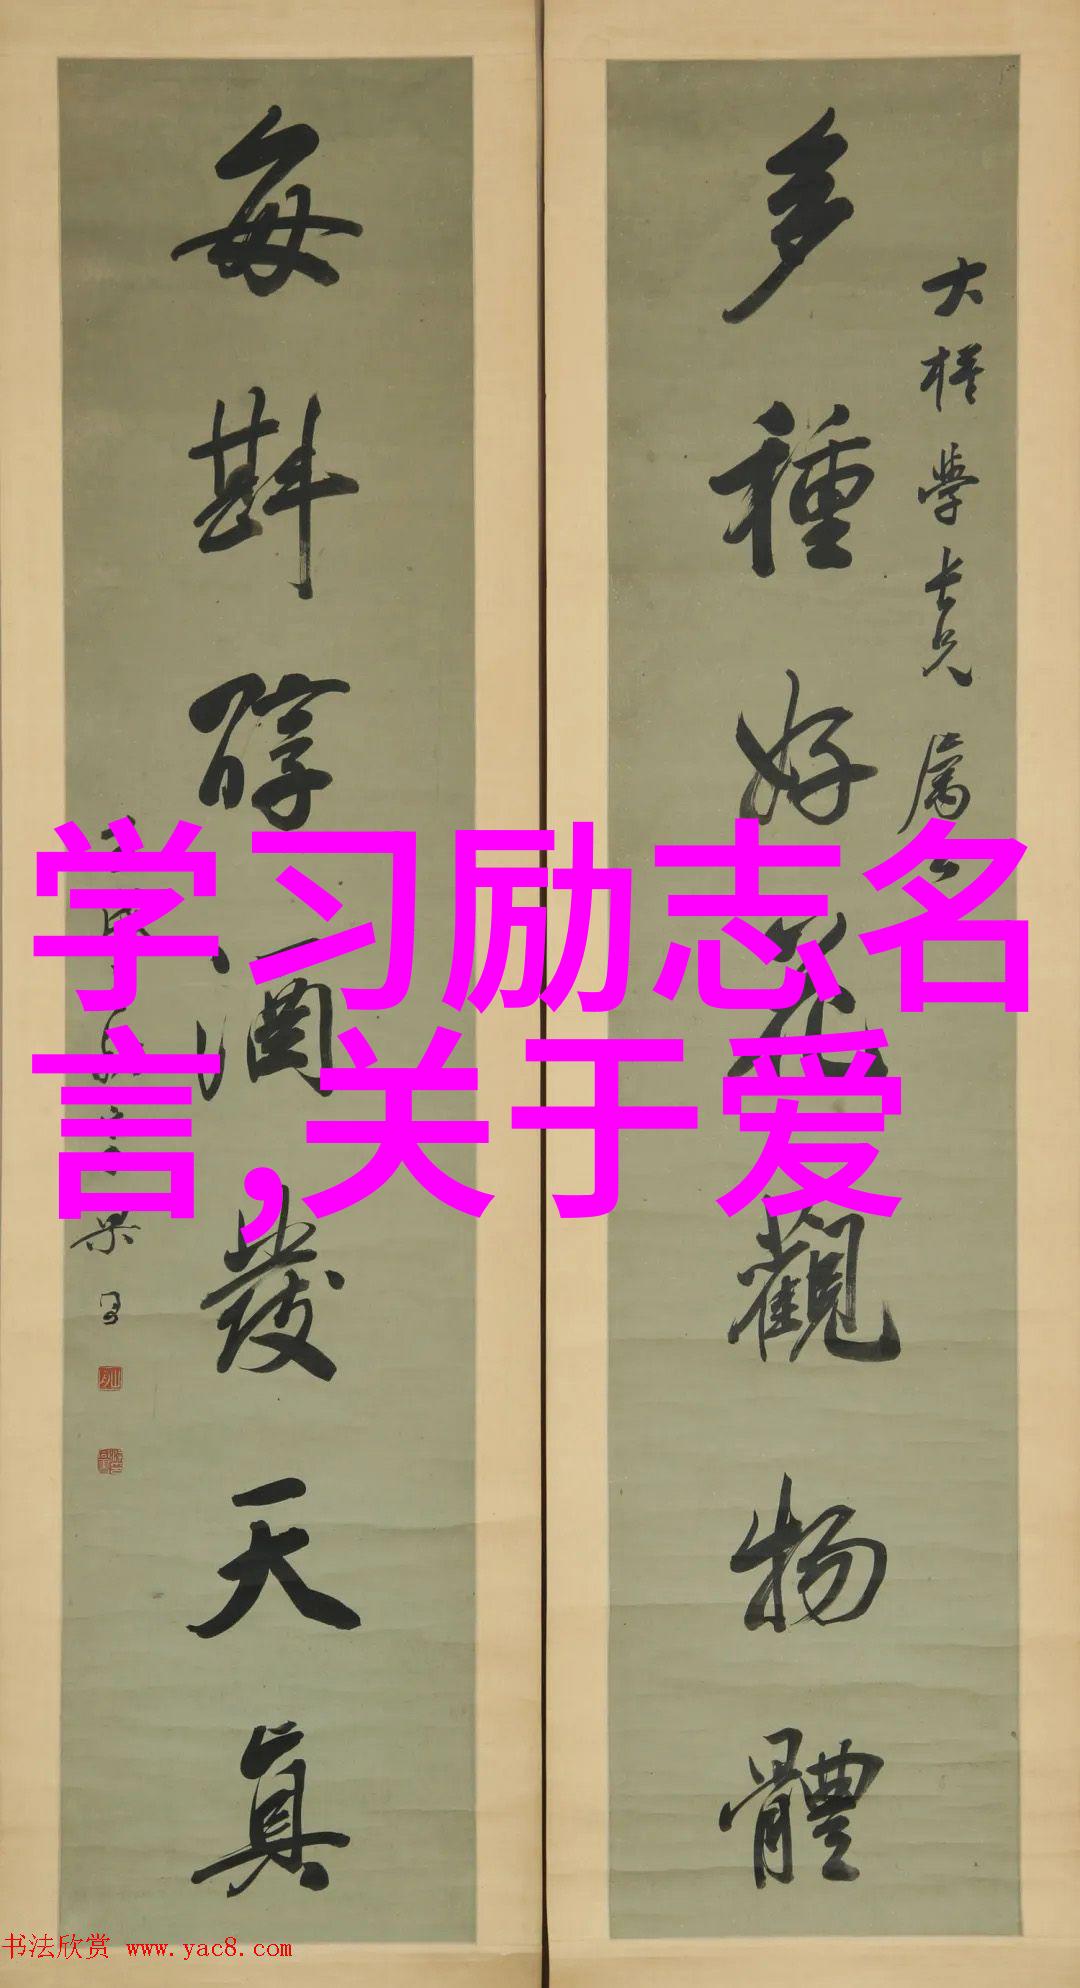 大
學長兄屬
多種好花觀物體
每斟醇酒發天真
梁
学习励志名
言,关于爱
书法欣赏 www.yac8.com